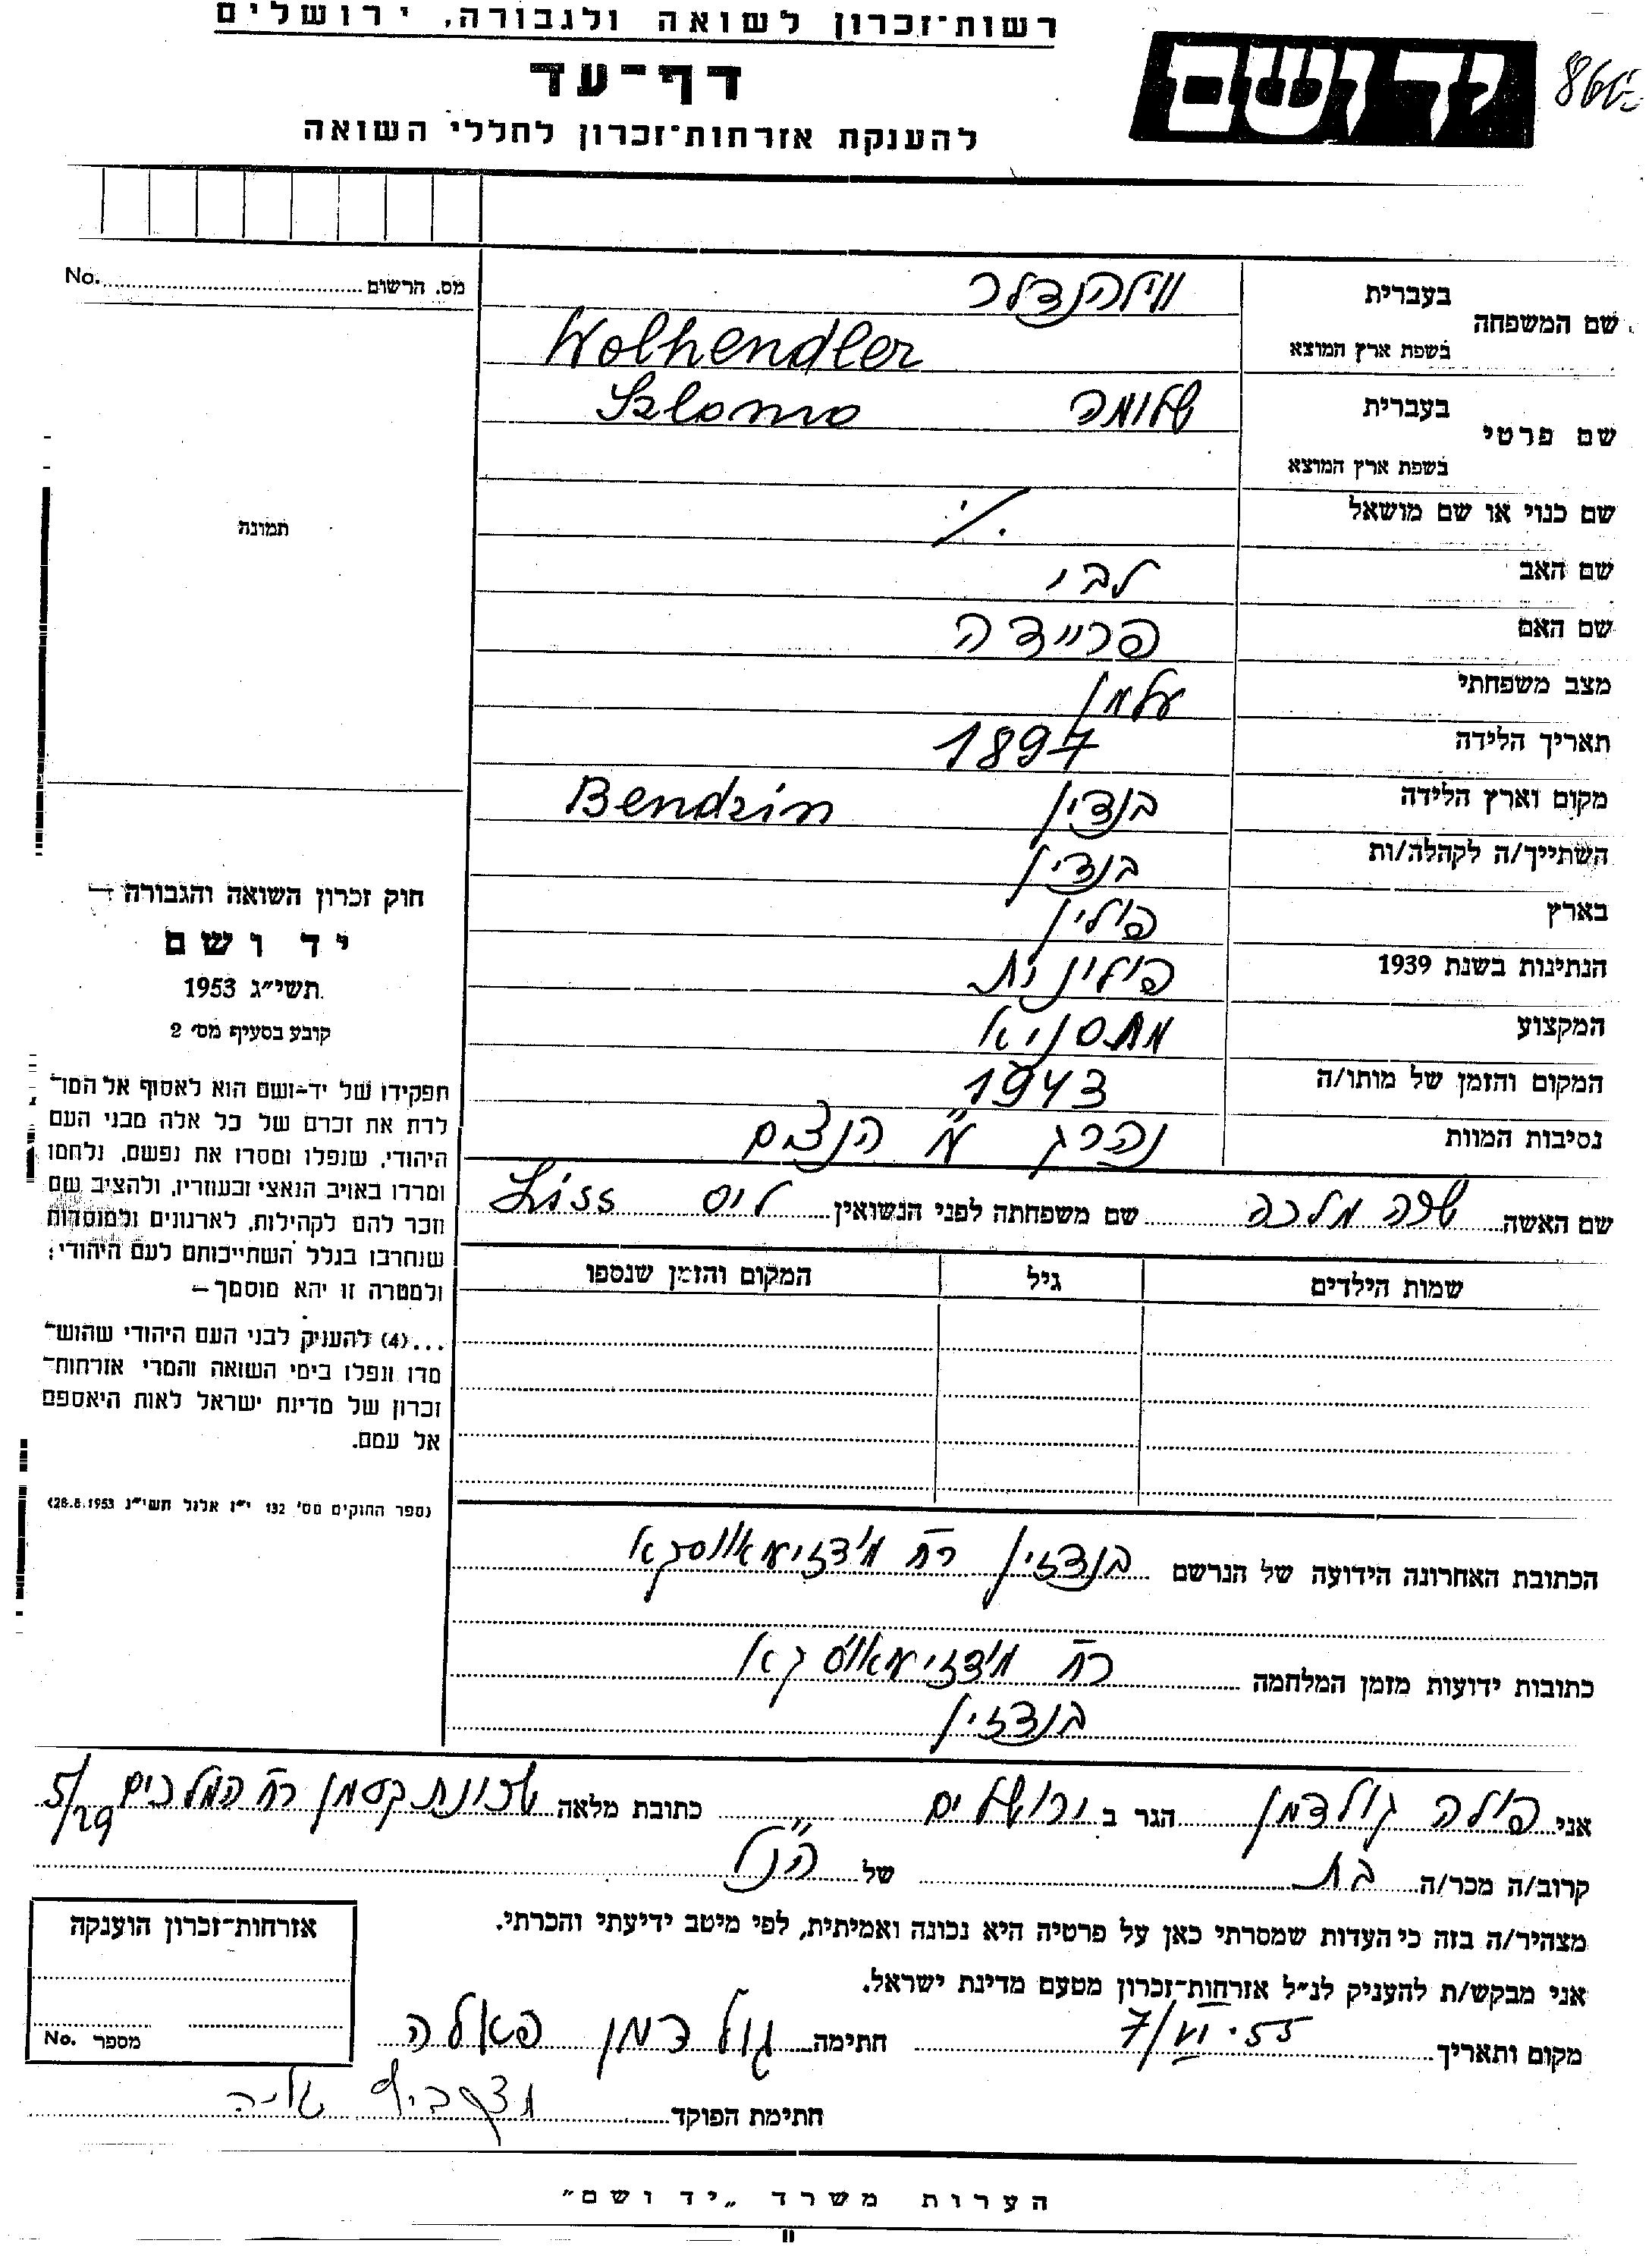 רשות־זכרון לשואה ולגבורה, ירושלים
יד ושם
דף־עד
להענקת אזרחות־זכרון לחללי השואה
מס. הרשום No.
שם המשפחה
בעברית
בשפת ארץ המוצא
Wolhendler
שם פרטי
בעברית שלומה Szlomo
בשפת ארץ המוצא
שם כנוי או שם מושאל ./.
תמונה
שם האב לבי
שם האם פריידה
מצב משפחתי אלמן
תאריך הלידה 1897
מקום וארץ הלידה בנדין Bendzin
השתייך/ה לקהלה/ות בנדין
בארץ פולין
הנתינות בשנת 1939 פולינית
המקצוע מחסניאי
המקום והזמן של מותו/ה 1943
נסיבות המוות נהרג ע"י הנצים
שם האשה שרה מלכה שם משפחתה לפני הנשואין ליס Liss
שמות הילדים גיל המקום והזמן שנספו
חוק זכרון השואה והגבורה —
יד ושם
תשי״ג 1953
קובע בסעיף מס׳ 2
תפקידו של יד־ושם הוא לאסוף אל המו־
לדת את זכרם של כל אלה מבני העם
היהודי, שנפלו ומסרו את נפשם, נלחמו
ומרדו באויב הנאצי ובעוזריו, ולהציב שם
וזכר להם לקהילות, לארגונים ולמוסדות
שנחרבו בגלל השתייכותם לעם היהודי;
ולמטרה זו יהא מוסמך —
...(4) להעניק לבני העם היהודי שהוש־
מדו ונפלו בימי השואה והמרי אזרחות־
זכרון של מדינת ישראל לאות היאספם
אל עמם.
(ספר החוקים מס׳ 132 י״ז אלול תשי״ג 28.8.1953)
הכתובת האחרונה הידועה של הנרשם בנדזין רח'
כתובות ידועות מזמן המלחמה רח'
בנדזין
אני פולה גולדמן הגר ב ירושלים כתובת מלאה שכונת קטמן רח' המלכים 5/29
קרוב/ה מכר/ה בת של הנ"ל
מצהיר/ה בזה כי העדות שמסרתי כאן על פרטיה היא נכונה ואמיתית, לפי מיטב ידיעתי והכרתי.
אני מבקש/ת להעניק לנ״ל אזרחות־זכרון מטעם מדינת ישראל.
מקום ותאריך 7/VI.55 חתימה גולדמן פאלה
חתימת הפוקד
אזרחות־זכרון הוענקה
מספר No.
הערות משרד „יד ושם״